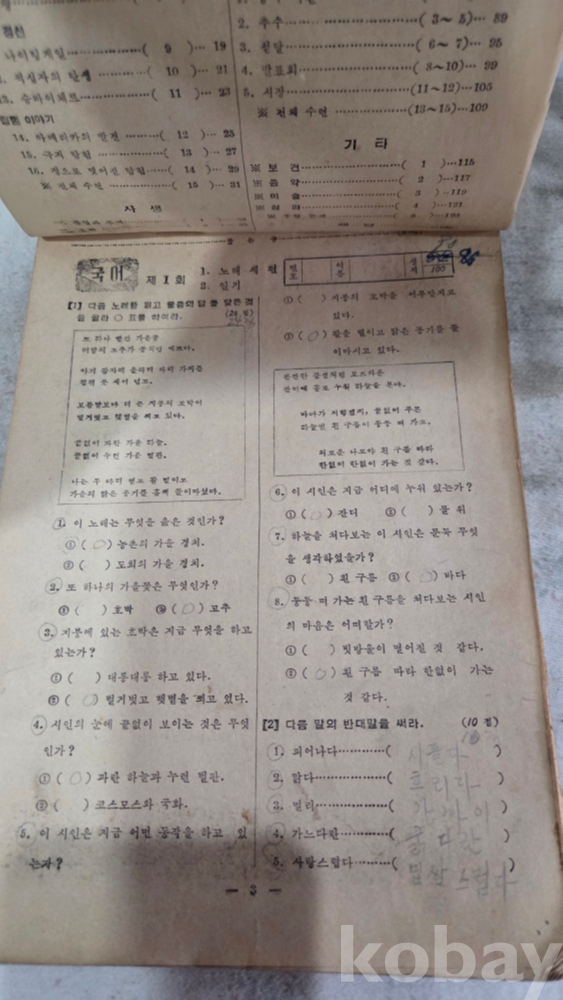 나이팅게일 ( 9 ) … 19
( 10 ) … 21
( 11 ) … 23
이야기
14. 아메리카의 발견 ( 12 ) … 25
15. 극지 탐험 ( 13 ) … 27
( 14 ) … 29
※ 전체 수련 ( 15 ) … 31
사 생
2. 추수 ( 3〜 5) … 89
3. ( 6〜 7) … 95
4. 발표회 ( 8〜10) … 99
5. 시장 (11〜12) … 105
※ 전체 수련 (13〜15) … 109
기 타
※ 보 건 ( 1 ) … 115
※ 음 악 ( 2 ) … 117
※ 미 술 ( 3 ) … 119
( 4 ) … 121
국어
제 1 회
1. 노래
2. 일기
번호
이름
성적
100
86
[1] 다음 노래를 읽고 물음의 답을 맞은 것을 골라 ○ 표를 하여라.
또 하나 빨간 가을꽃
지붕의 고추가
보름달보다 더 큰 지붕의 호박이
벌거벗고 햇볕을 쬐고 있다.
끝없이 파란 가을 하늘.
끝없이 누런 가을 벌판.
나는 두 다리 벋고 팔 벌리고
가을의 맑은 공기를 흠뻑 들이마셨다.
1. 이 노래는 무엇을 읊은 것인가?
① ( ○ ) 농촌의 가을 경치.
② ( ) 도회의 가을 경치.
2. 또 하나의 가을꽃은 무엇인가?
① ( ) 호박 ② ( ○ ) 고추
3. 지붕에 있는 호박은 지금 무엇을 하고
있는가?
① ( ) 대롱대롱 하고 있다.
② ( ○ ) 벌거벗고 햇볕을 쬐고 있다.
4. 시인의 눈에 끝없이 보이는 것은 무엇
인가?
① ( ○ ) 파란 하늘과 누런 벌판.
② ( ) 코스모스와 국화.
5. 이 시인은 지금 어떤 동작을 하고 있
는가?
① ( ) 지붕의 호박을 어루만지고
있다.
② ( ○ ) 팔을 벌리고 맑은 공기를 들
이마시고 있다.
잔디에 홀로 누워 하늘을 본다.
바다가 저렇겠지, 끝없이 푸른
하늘엔 흰 구름이 둥둥 떠 가고.
외로운 나도야 흰 구름 따라
한없이 한없이 가는 것 같다.
6. 이 시인은 지금 어디에 누워 있는가?
① ( ○ ) 잔디 ② ( ) 풀 위
7. 하늘을 쳐다보는 이 시인은 문득 무엇
을 생각하였을까?
① ( ) 흰 구름 ② ( ○ ) 바다
8. 둥둥 떠 가는 흰 구름을 쳐다보는 시인
의 마음은 어떠할가?
① ( ) 빗방울이 떨어진 것 같다.
② ( ○ ) 흰 구름 따라 한없이 가는
것 같다.
[2] 다음 말의 반대말을 써라. (10 점)
1. 피어나다 ( 시들다 )
2. 맑다 ( 흐리다 )
3. 멀리 ( 가까이 )
4. 가느다란 ( 굵다란 )
5. 사랑스럽다 ( 밉살스럽다 )
— 3 —
kobay